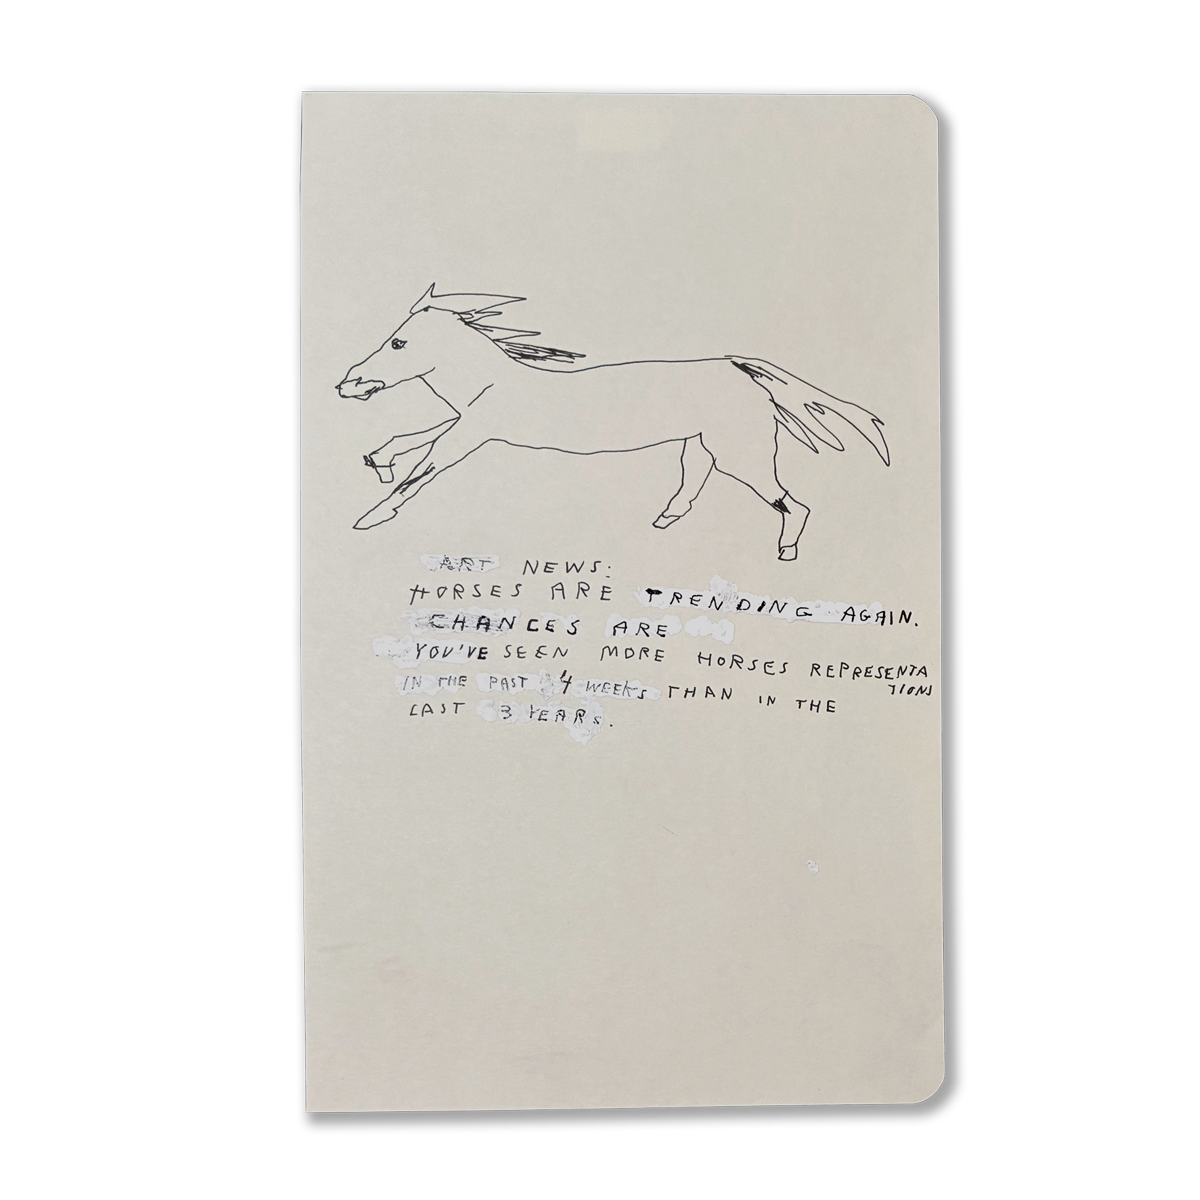 ART NEWS:
HORSES ARE TRENDING AGAIN.
CHANCES ARE
YOU'VE SEEN MORE HORSES REPRESENTA
TIONS
IN THE PAST 4 WEEKS THAN IN THE
LAST 3 YEARS.